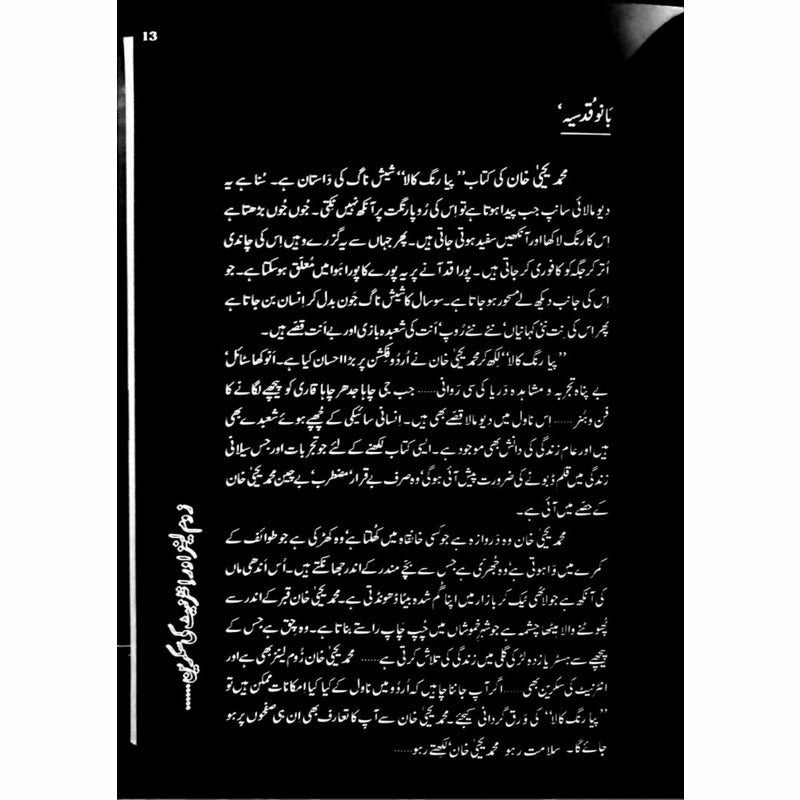 13
بانو قُدسیہ،
محمد یحییٰ خان کی کتاب ’’پیا رنگ کالا‘‘ شیش ناگ کی دَاستان ہے۔ سُنا ہے یہ
دیو مالائی سانپ جب پیدا ہوتا ہے تو اِس کی رُوپا رنگت پر آنکھ نہیں ٹِکتی۔ جُوں جُوں بڑھتا ہے
اِس کا رنگ لاکھا اور آنکھیں سفید ہوتی جاتی ہیں۔ پھر جہاں سے یہ گزرے وہیں اِس کی چاندی
اُتر کر جگہ کو کافوری کر جاتی ہیں۔ پورا قد آنے پر یہ پورے کا پورا ہَوا میں مُعلّق ہو سکتا ہے۔ جو
اِس کی جانب دیکھ لے مسحور ہو جاتا ہے۔ سو سال کا شیش ناگ جَون بدل کر اِنسان بن جاتا ہے
پھر اس کی نِت نئی کہانیاں‘ نئے نئے رُوپ‘ اَنت کی شعبدہ بازی اور بے اَنت قصّے ہیں۔
’’پیا رنگ کالا‘‘ لِکھ کر محمد یحییٰ خان نے اُردُو فِکشن پر بڑا احسان کیا ہے۔ اَنوکھا سٹائل‘
بے پناہ تجربہ و مشاہدہ دَریا کی سی رَوانی ...... جب جی چاہا جدھر چاہا قاری کو پیچھے لگانے کا
فن و ہُنر ...... اِس ناول میں دیو مالا قصّے بھی ہیں۔ اِنسانی سائیکی کے چُھپے ہوئے شعبدے بھی
ہیں اور عام زندگی کی دانش بھی موجود ہے۔ ایسی کتاب لکھنے کے لئے جو تجربات اور جس سیلانی
زندگی میں قلم ڈبونے کی ضرورت پیش آئی ہوگی‘ وہ صرف بے قرار‘ مضطرب‘ بے چین محمد یحییٰ خان
کے حصّے میں آئی ہے۔
محمد یحییٰ خان وہ دَروازہ ہے جو کسی خانقاہ میں کُھلتا ہے‘ وہ کھڑکی ہے جو طوائف کے
کمرے میں وَا ہوتی ہے‘ وہ جُھری ہے جس سے بچّے مندر کے اندر جھانکتے ہیں۔ اُس اَندھی ماں
کی آنکھ ہے جو لاٹھی ٹیک کر بازار میں اپنا گُم شدہ بیٹا ڈھونڈتی ہے۔ محمد یحییٰ خان قبر کے اندر سے
پُھوٹنے والا میٹھا چشمہ ہے جو شہرِ خموشاں میں چُپ چاپ راستے بناتا ہے۔ وہ چِق ہے جس کے
پیچھے سے ہسٹریا زدہ لڑکی گلی میں زندگی کی تلاش کرتی ہے ...... محمد یحییٰ خان زُوم لینز بھی ہے اور
انٹرنیٹ کی سکرین بھی ...... اگر آپ جاننا چاہیں کہ اُردُو میں ناول کے کیا کیا اِمکانات ممکن ہیں تو
’’پیا رنگ کالا‘‘ کی وَرق گردانی کیجئے۔ محمد یحییٰ خان سے آپ کا تعارف بھی ان ہی صفحوں پر ہو
جائے گا۔ سلامت رہو محمد یحییٰ خان‘ لکھتے رہو ......
زوم لینز اور انٹرنیٹ کی سکرین ......